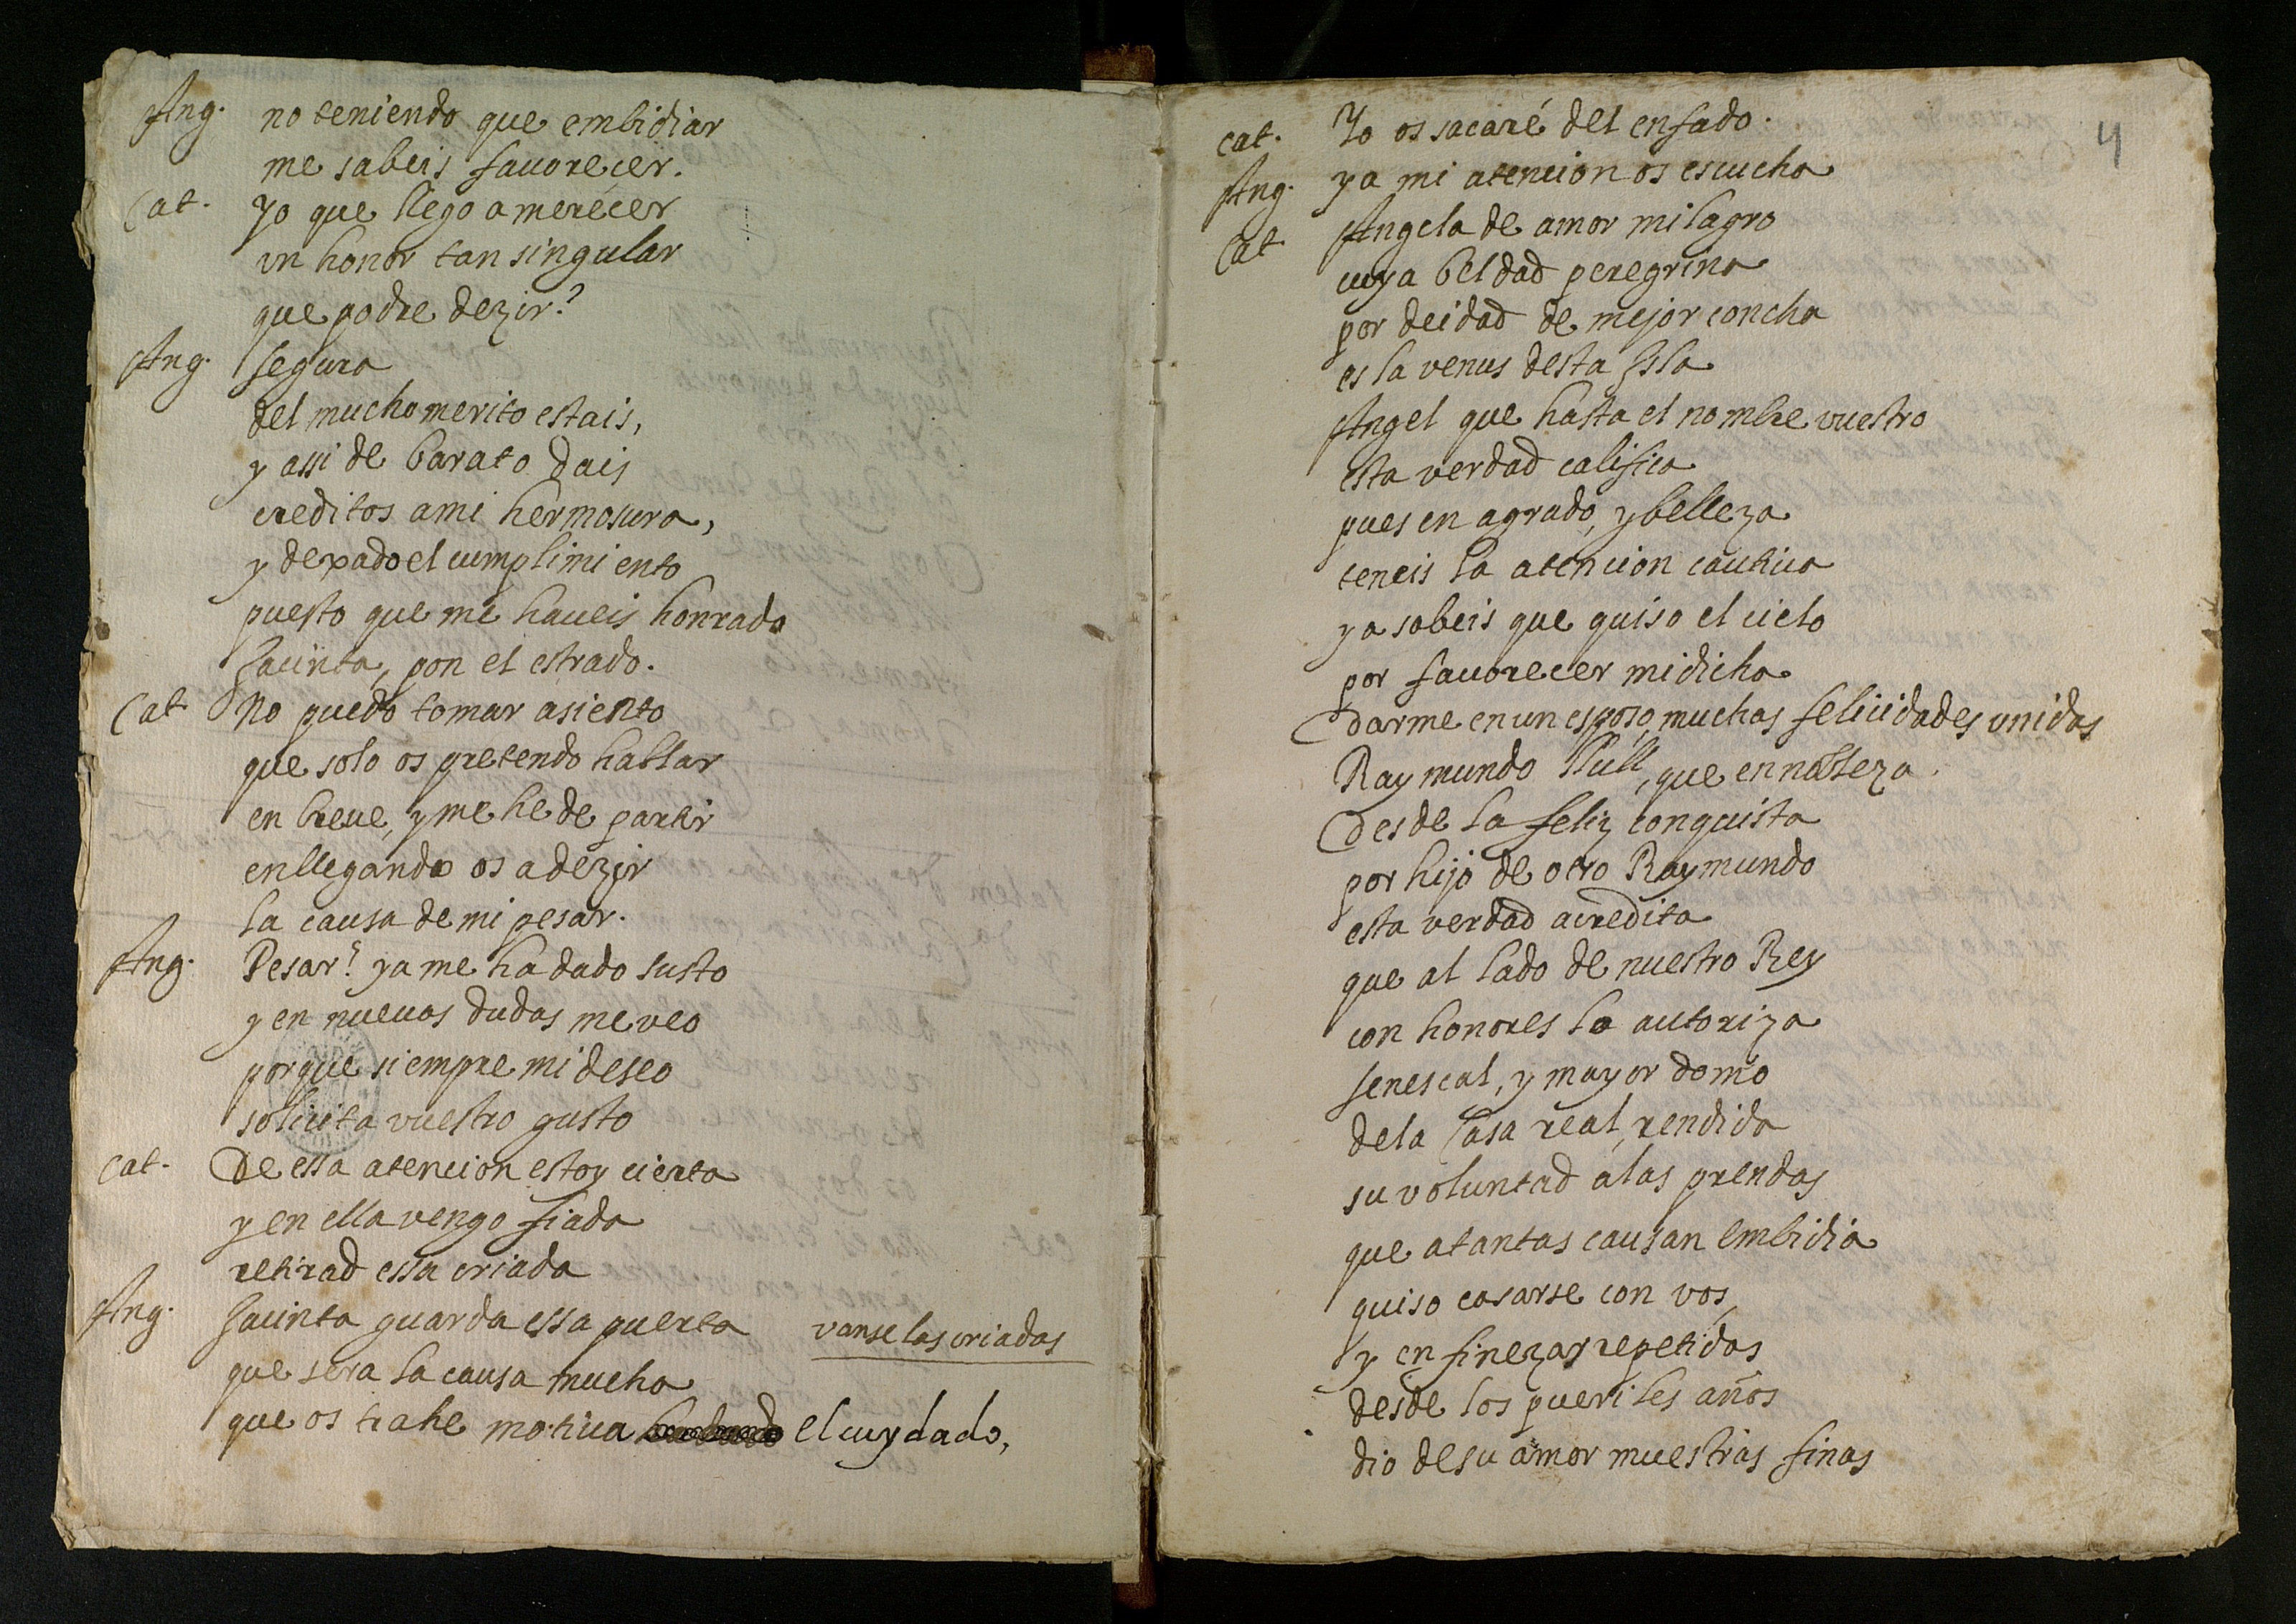 Ang. no teniendo que embidiar
me sabeis fauorecer.
Cat. Yo que llego a merecer
vn honor tan singular
que podre dezir?
Ang. segura
del mucho merito estais,
y assi de barato dais
creditos a mi hermosura,
y dexado el cumplimiento
puesto que me haueis honrado
Jacinta, pon el estrado.
Cat. No puedo tomar asiento
que solo os pretendo hablar
en breue, y me he de partir
en llegando os a dezir
la causa de mi pesar.
Ang. Pesar? ya me ha dado susto
y en nueuas dudas me veo
porque siempre mi deseo
solicita vuestro gusto
Cat. De essa atencion estoy cierta
y en ella vengo fiada
retirad essa criada
Ang. Jacinta guarda essa puerta vanse las criadas
que sera la causa mucha
que os trahe motiua el cuydado,
4
Cat. Yo os sacaré del enfado.
Ang. ya mi atencion os escucha
Cat. Angela de amor milagro
cuya beldad peregrina
por deidad de mejor concha
es la venus desta Isla
Angel que hasta el nombre vuestro
esta verdad califica
pues en agrado, y belleza
teneis la atencion cautiua
ya sabeis que quiso el cielo
por fauorecer mi dicha
darme en un esposo, muchas felicidades vnidas
Raymundo Llull, que en nobleza
desde la feliz conquista
por hijo de otro Raymundo
esta verdad acredita
que al lado de nuestro Rey
con honores la autoriza
senescal, y mayordomo
dela Casa real, rendida
su voluntad a las prendas
que atantas causan embidia
quiso casarse con vos,
y en finezas repetidas
desde los pueriles años
dio de su amor muestras finas